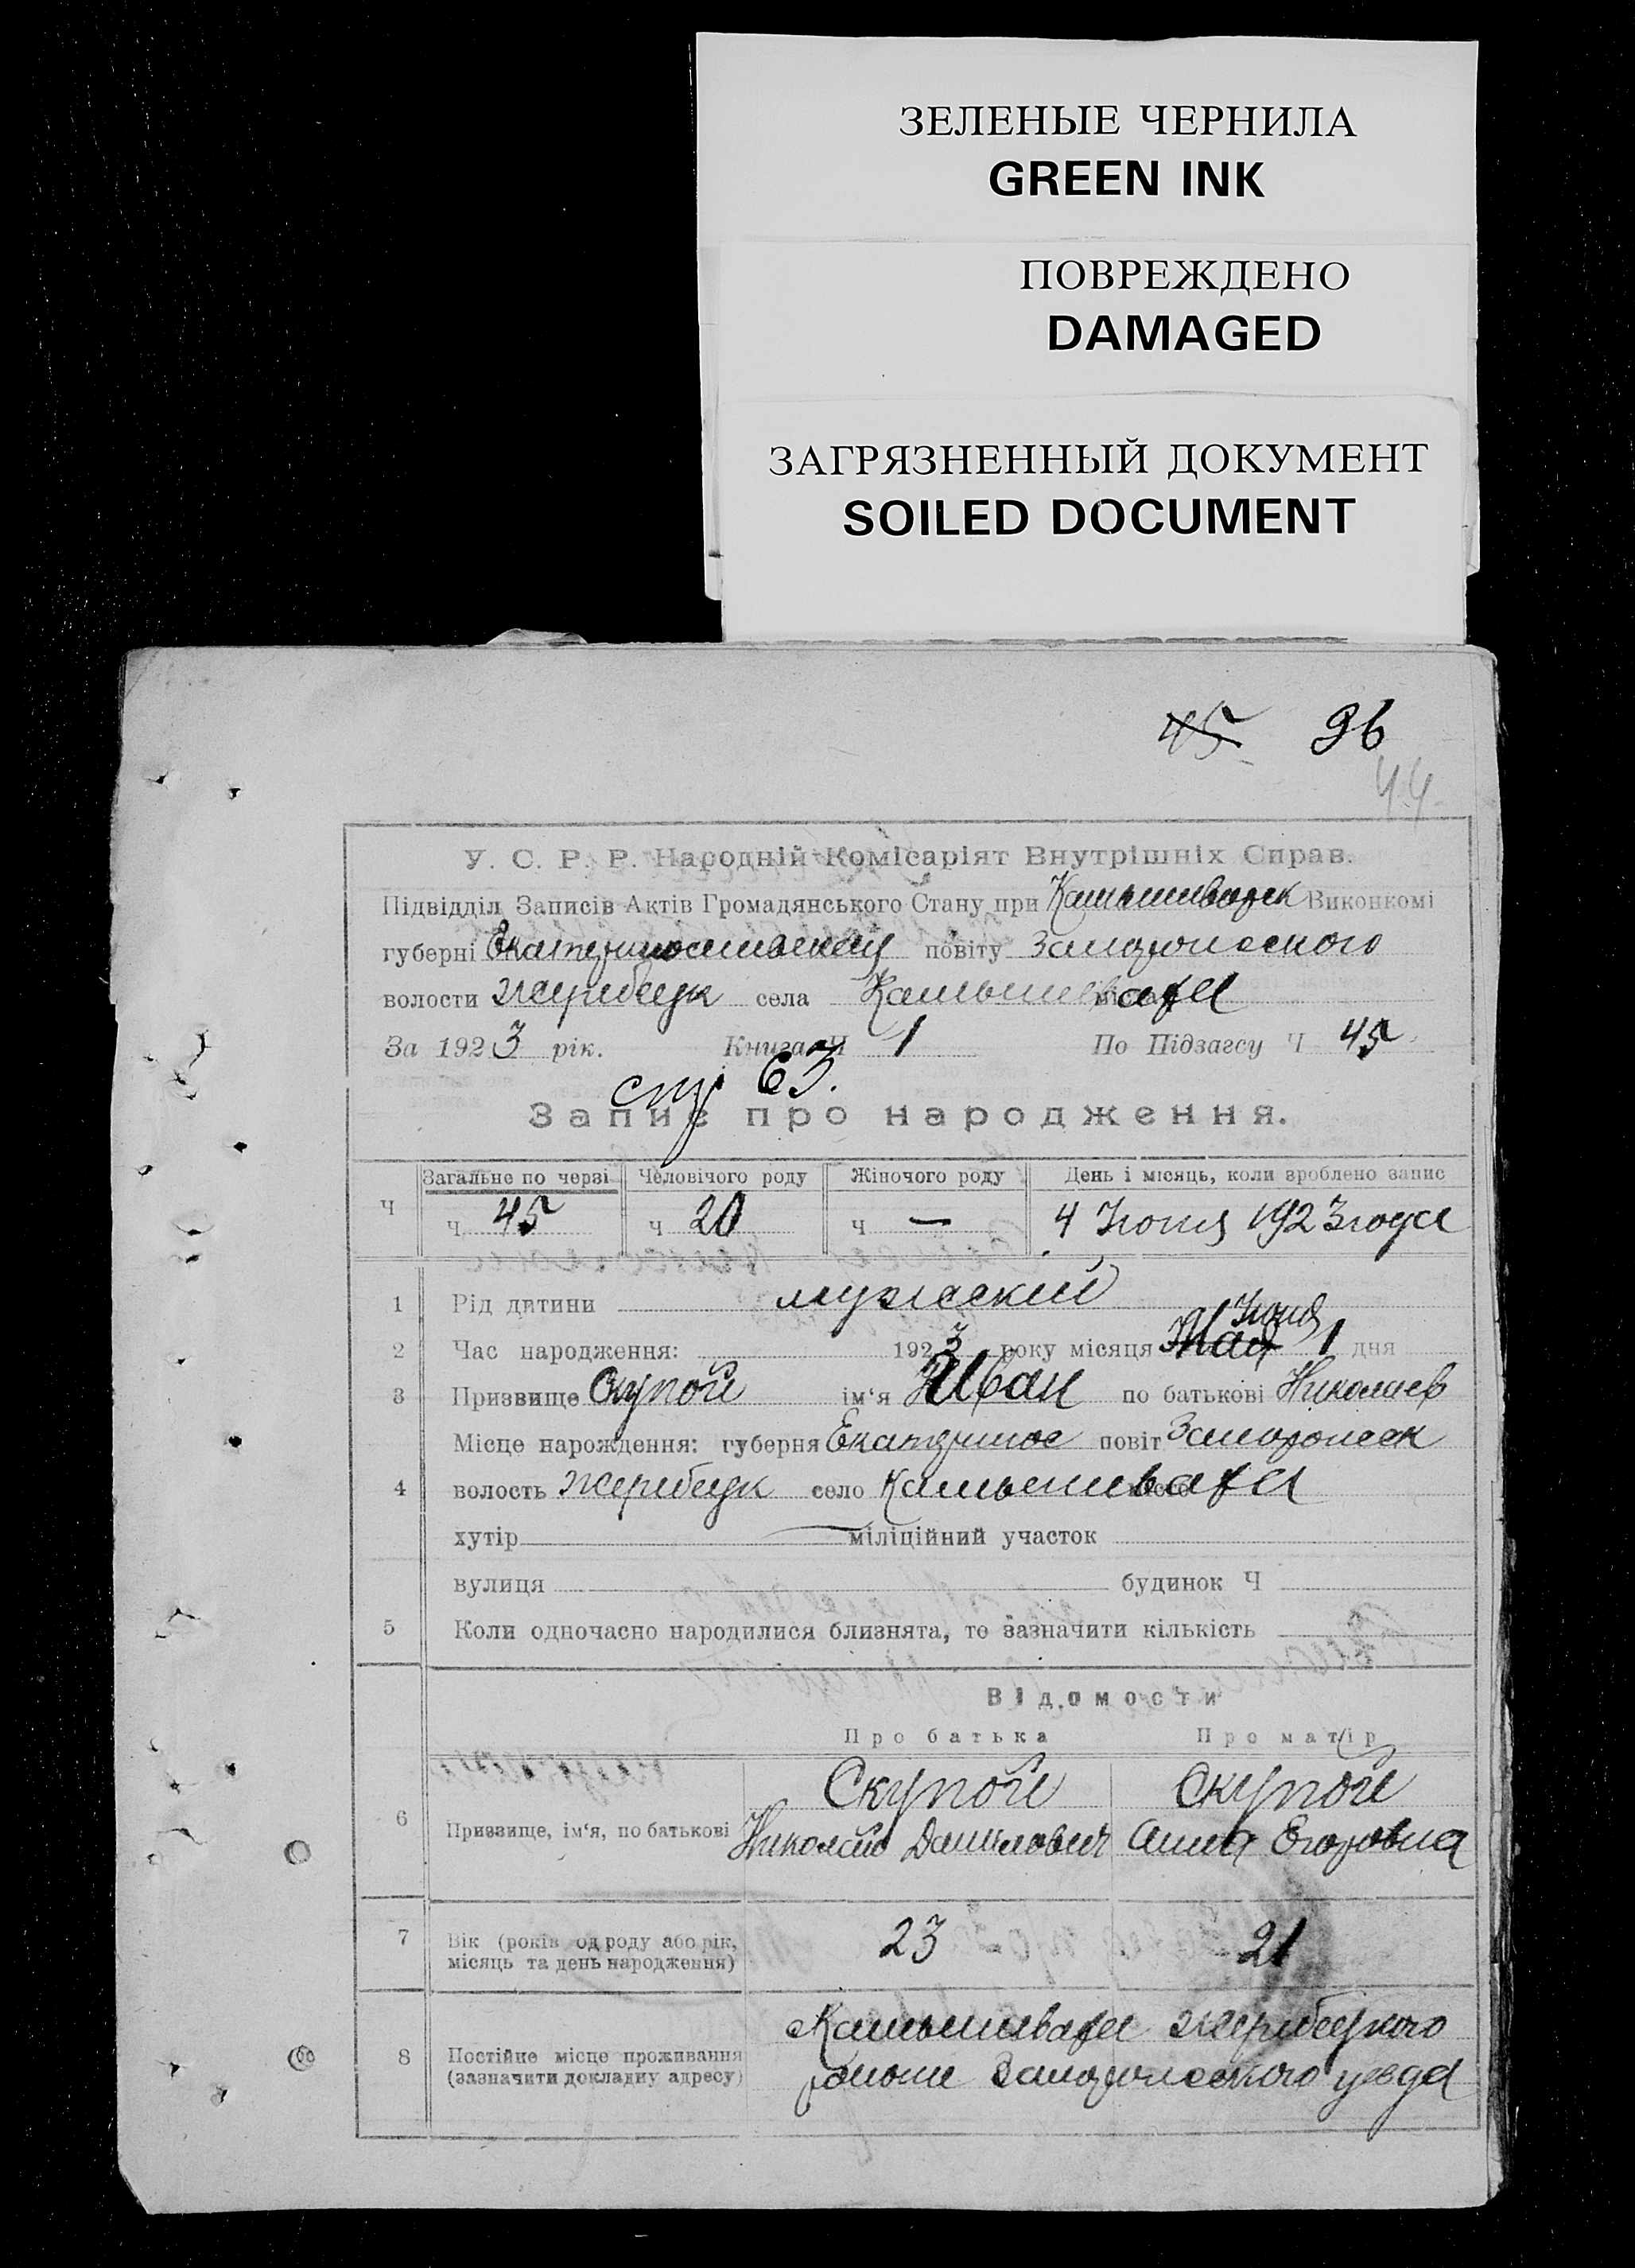 ЗЕЛЕНЫЕ ЧЕРНИЛА
GREEN INK
ПОВРЕЖДЕНО
DAMAGED
ЗАГРЯЗНЕННЫЙ ДОКУМЕНТ
SOILED DOCUMENT
45 96
44
У. С. Р. Р. Народній Комісаріят Внутрішніх Справ.
Підвідділ Записів Актів Громадянського Стану при Камышеватск Виконкомі
губерні Екатеринославской повіту Запорожского
волости Жеребецк села Камышеватей
За 1923 рік. Книга Ч 1 По Підзагсу Ч 45
стр 63.
Запис про народження.
Загальне по черзі Человічого роду Жіночого роду День і місяць, коли зроблено запис
Ч ч 45 ч 20 ч — 4 Июня 1923 года
1 Рід дитини мужеский
Июня
2 Час народження: 1923 року місяця Мая 1 дня
3 Призвище Скупой ім‘я Иван по батькові Николаев
Місце нарождення: губерня Екатеринос повіт Запорожск
4 волость Жеребецк село Камышеватей
хутір міліційний участок
вулиця будинок Ч
5 Коли одночасно народилися близнята, то зазначити кількість
Відомости
Про батька Про матір
Скупой Скупой
6 Призвище, ім‘я, по батькові Николай Данилович Анна Егоровна
7 Вік (років од роду або рік, 23 21
місяць та день народження)
Камышеватей Жеребецкого
8 Постійне місце проживання
(зазначити докладну адресу) района Запорожского уезда